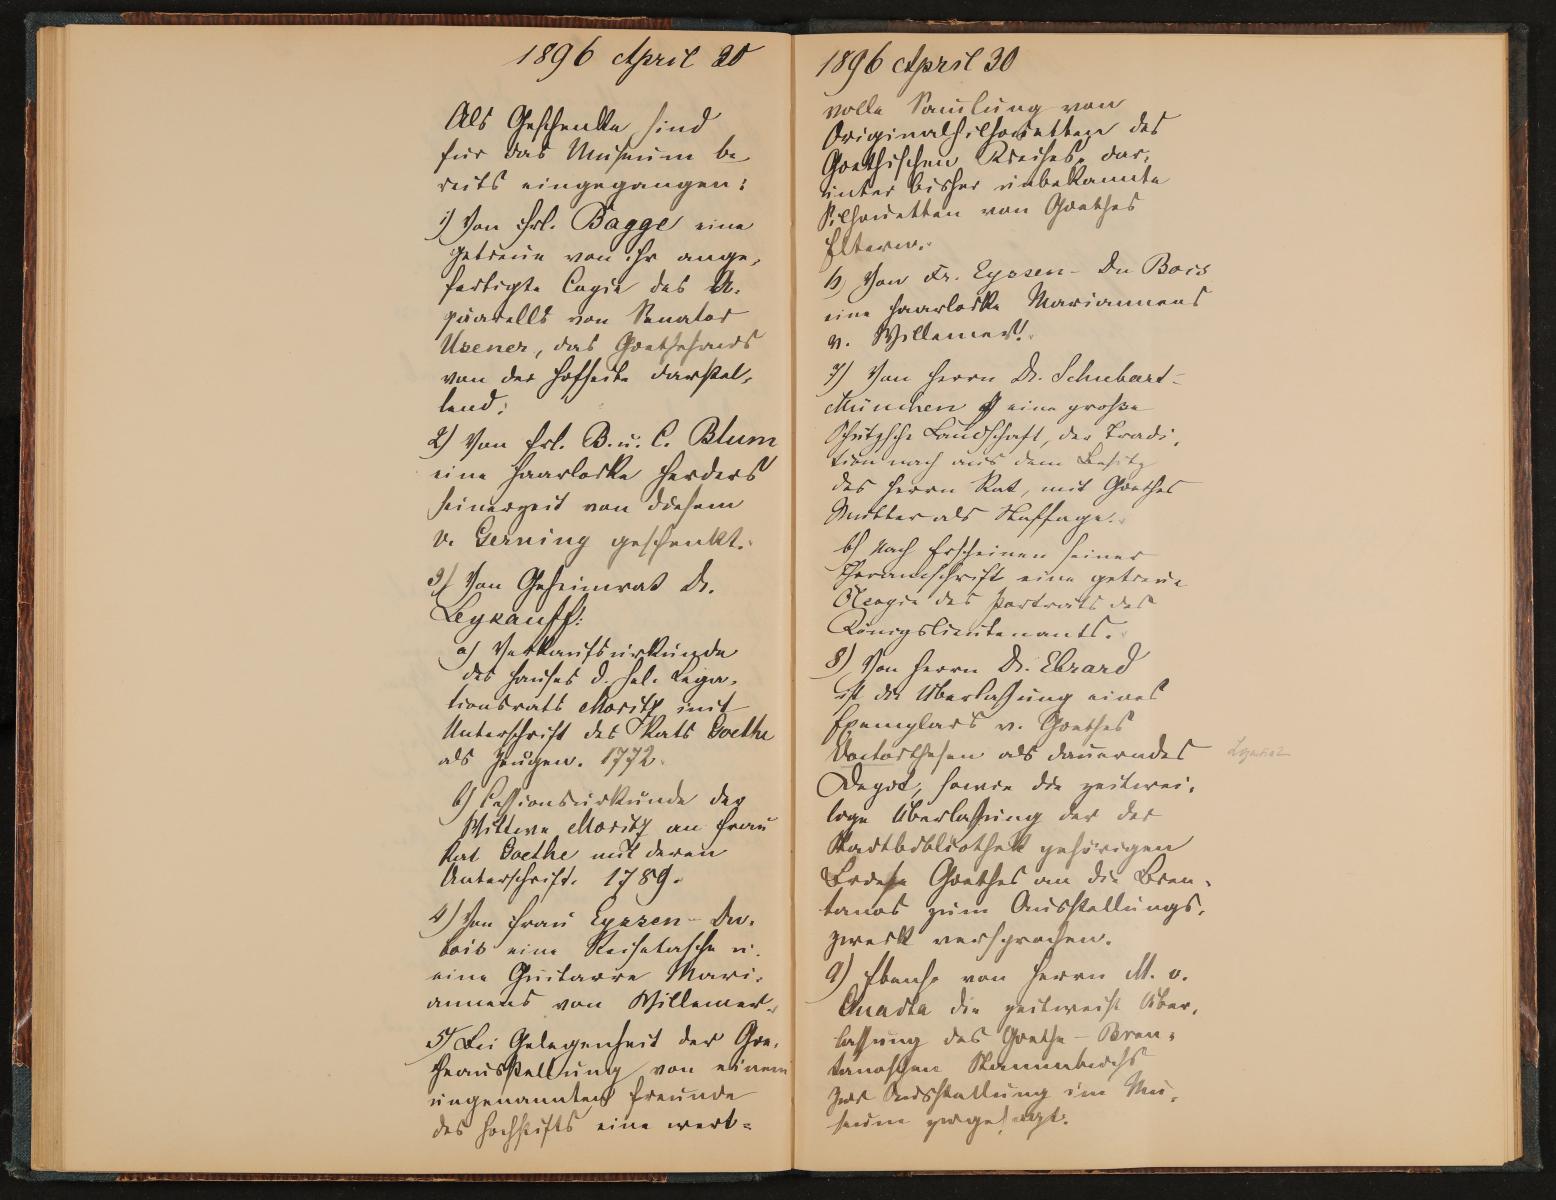 1896 April 30
Als Geschenke sind
für das Museum be
reits eingegangen:
1) Von Frl. Bagge eine
getreue von ihr ange-
fertigte Copie des A-
quarells von Senator
Usener, das Goethehaus
von der Hofseite darstel-
lend;
2) Von Frl. B. u. C. Blum
eine Haarlocke Herders
seinerzeit von diesem
v. Gerning geschenkt.
3) Von Geheimrat Dr.
Leykauff:
a) Verkaufsurkunde
des Hauses d. sel. Lega-
tionsrats Moritz mit
Unterschrift des Rats Goethe
als Zeugen. 1772.
b) Cessionsurkunde der
Wittwe Moritz an Frau
Rat Goethe mit deren
Unterschrift. 1789.
4) Von Frau Eyssen-Du-
bois eine Reisetasche u.
eine Guitarre Mari-
annens von Willemer.
5) Bei Gelegenheit der Goe-
theausstellung von einem
ungenannten Freunde
des Hochstifts eine wert-
1896 April 30
volle Samlung von
Originalsilhouetten des
Goethischen Kreises, dar-
unter bisher unbekannte
Silhouetten von Goethes
Eltern.
6) Von Fr. Eyssen-Du Bois
eine Haarlocke Mariannens
v. Willemer!
7) Von Herrn Dr. Schubart-
München eine große
Schützsche Landschaft, der Tradi-
tion nach aus dem Besitz
des Herrn Rat, mit Goethes
Mutter als Staffage.
b) Nach Erscheinen seiner
Thorancschrift eine getreue
Copie des Portraits des
Königslieutenants.
8) Von Herrn Dr. Ebrard
ist die Überlassung eines
Exemplars v. Goethes
Doctorthesen als dauerndes
Depot, sowie die zeitwei-
lige Überlassung der der
Stadtbibliothek gehörigen
Briefe Goethes an die Bren-
tanos zum Ausstellungs-
zweck versprochen.
9) Ebenso von Herrn M. v.
Guaita die zeitweise Über-
lassung des Goethe-Bren-
tanoschen Stammbuchs
zur Ausstellung im Mu-
seum zugesagt.